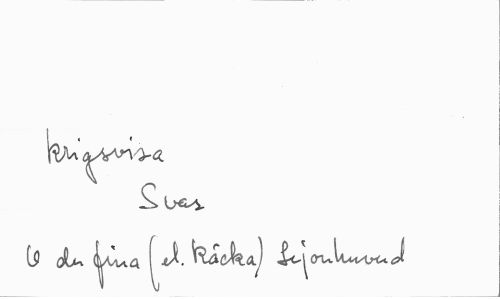 krigsvisa
Svar
O du fina (el. käcka) Lejonhuvud